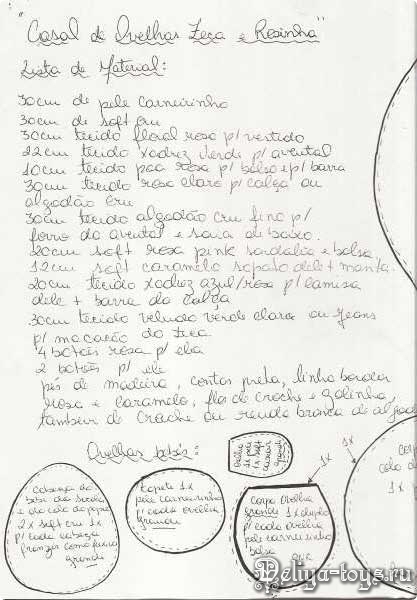 "Casal de Ovelhas Zeca e Rosinha"
Lista de Material:
30cm de pele carneirinho
30cm de soft cru
30cm tecido floral rosa p/ vestido
22cm tecido xadrez verde p/ avental
10cm tecido poa rosa p/ bolso e p/ barra
30cm tecido rosa claro p/ calça ou
algodão cru
30cm tecido algodão cru fino p/
forro do avental e saia de baixo.
20cm soft rosa pink sandalia e bolsa
12cm soft caramelo sapato dele + manta.
20cm tecido xadrez azul/rosa p/ camisa
dele + barra da calça
30cm tecido veludo verde claro ou jeans
p/ macacão do Zeca
4 botões rosa p/ ela
2 botões p/ ele
pés de madeira, contas preta, linha bordar
rosa e caramelo, flor de croche e golinha,
tambem de croche ou renda branca de algod
Ovelhas bebês:
Orelha
1x pele
1x soft
Cabeça do
bebê da
e do colo do papai
2x soft cru 1x
p/ cada cabeça
franzir como fuxico
grandi
Topete 1x
pele carneirinho
p/ cada ovelha
grandi
Corpo Ovelha
grande 1x duplo
p/ cada ovelha
pele carneirinho
bolsa
1x
1x
Corp
pele
p/ cada
ovelha
1x p
Peliya-toys.ru